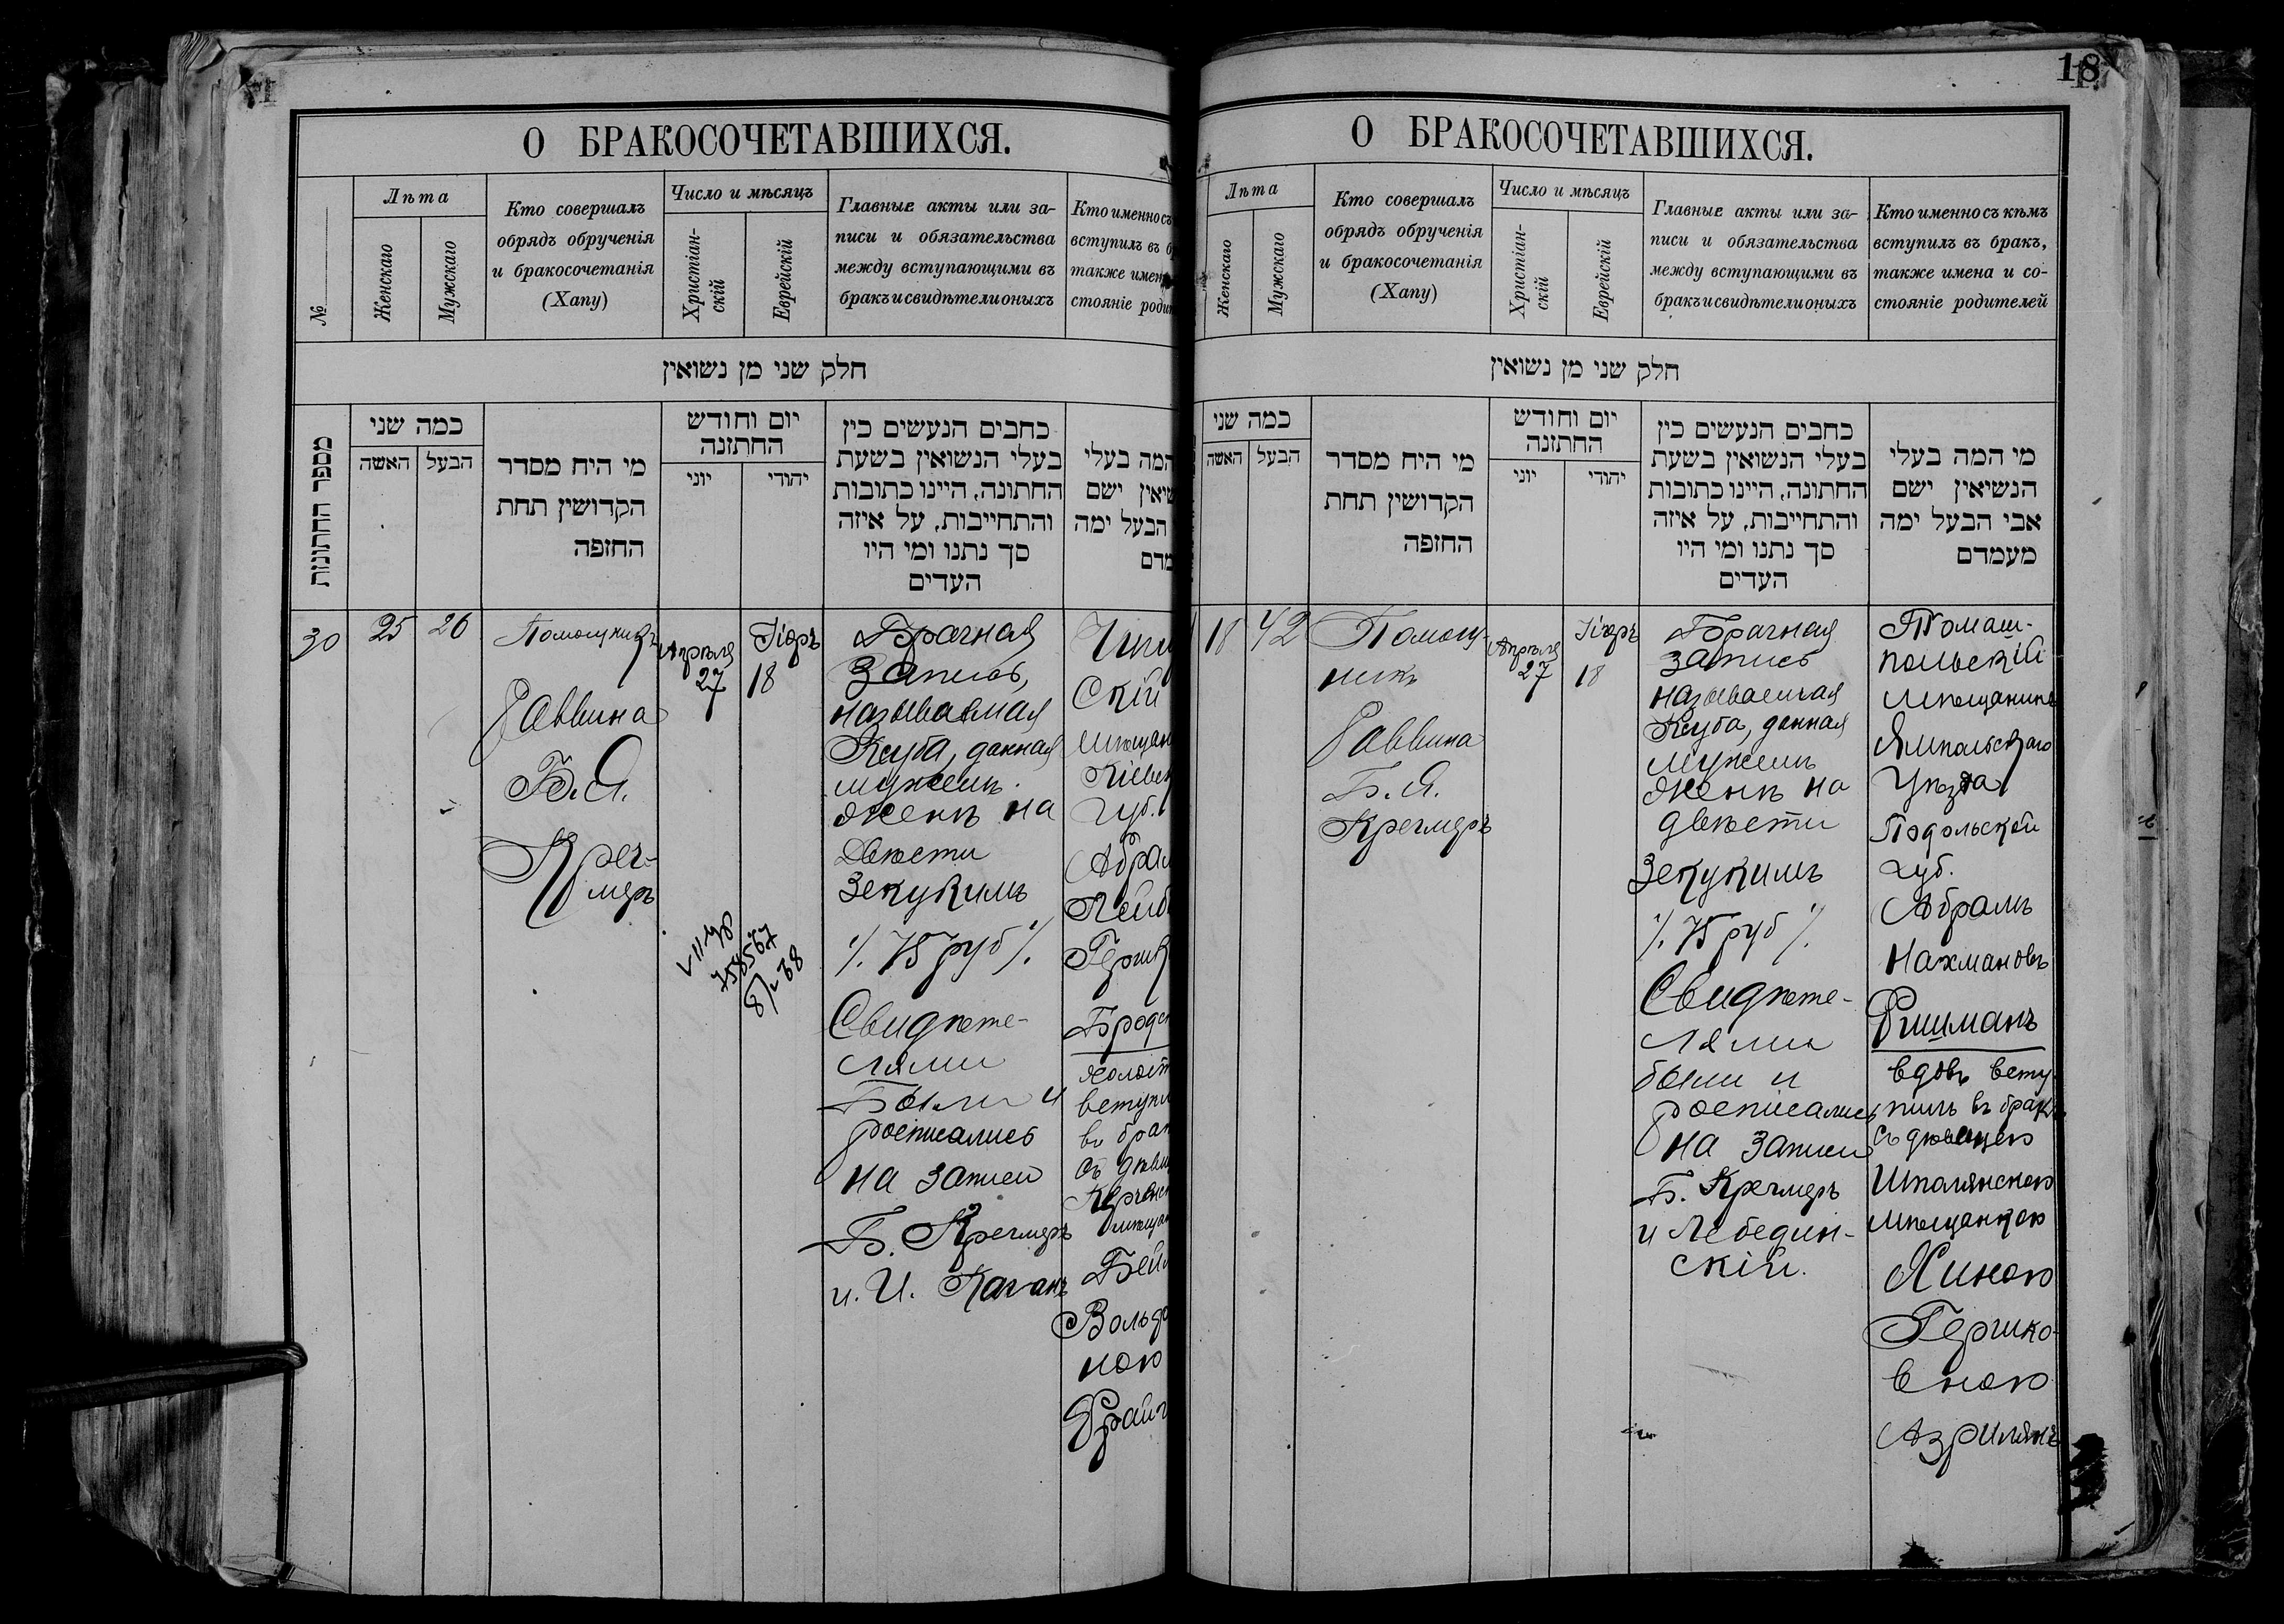 О БРАКОСОЧЕТАВШИХСЯ.
№
Лѣта
Женскаго
Мужскаго
Кто совершалъ
обрядъ обрученія
и бракосочетанія
(Хапу)
Число и мѣсяцъ
Христіан-
скій
Еврейскій
Главные акты или за-
писи и обязательства
между вступающими въ
бракъ и свидѣтели оныхъ
Кто именно съ
вступилъ въ б
также имен
стояніе роди
חלק שני מן נשואין
מספר החתונות
כמה שני
האשה
הבעל
מי היח מסדר
הקדושין תחת
החזפה
יום וחודש
החתזנה
יוני
יהודי
כחבים הנעשים כין
בעלי הנשואין בשעת
החתונה, היינו כתובות
והתחייבות, על איזה
סך נתנו ומי היו
העדים
המה בעלי
שיאין ישם
הבעל ימה
מדם
30
25
26
Помощникъ
Раввина
Б.Я.
Креч-
меръ
Апрѣля
27
Іюръ
18
Брачная
Запись,
называемая
Ксуба, данная
мужемъ
женѣ на
Двѣсти
Зекукимъ
./. 75 руб ./.
Свидѣте-
лями
Были и
росписались
на записи
Б. Кречмеръ
и И. Каганъ
скій
мѣщан
Кіевск
губ.
Абрам
Лейб
Гершк
Бродс
холост
вступи
въ брак
съ дѣви
мѣщан
Бей
Вольфо
ною
Фрайч
18
О БРАКОСОЧЕТАВШИХСЯ.
Лѣта
Женскаго
Мужскаго
Кто совершалъ
обрядъ обрученія
и бракосочетанія
(Хапу)
Число и мѣсяцъ
Христіан-
скій
Еврейскій
Главные акты или за-
писи и обязательства
между вступающими въ
бракъ и свидѣтели оныхъ
Кто именно съ кѣмъ
вступилъ въ бракъ,
также имена и со-
стояніе родителей
חלק שני מן נשואין
כמה שני
האשה
הבעל
מי היח מסדר
הקדושין תחת
החזפה
יום וחודש
החתזנה
יוני
יהודי
כחבים הנעשים כין
בעלי הנשואין בשעת
החתונה, היינו כתובות
והתחייבות, על איזה
סך נתנו ומי היו
העדים
מי המה בעלי
הנשיאין ישם
אבי הבעל ימה
מעמדם
18
42
Помощ-
никъ
Раввина
Б.Я.
Кречмеръ
Апрѣля
27
Іюръ
18
Брачная
запись
называемая
Ксуба, данная
мужемъ
женѣ на
двѣсти
Зекукимъ
./. 75 руб ./.
Свидѣте-
лями
были и
росписались
на записи
Б. Кречмеръ
и Лебедин-
скій.
Томаш-
польскій
мѣщанинъ
Ямпольскаго
Уѣзда
Подольской
губ.
Абрамъ
Нахмановъ
Фишманъ
вдовъ всту-
пилъ въ бракъ
съ дѣвицею
Шполянскою
мѣщанкою
Хиною
Гершко-
вною
Азрилянъ